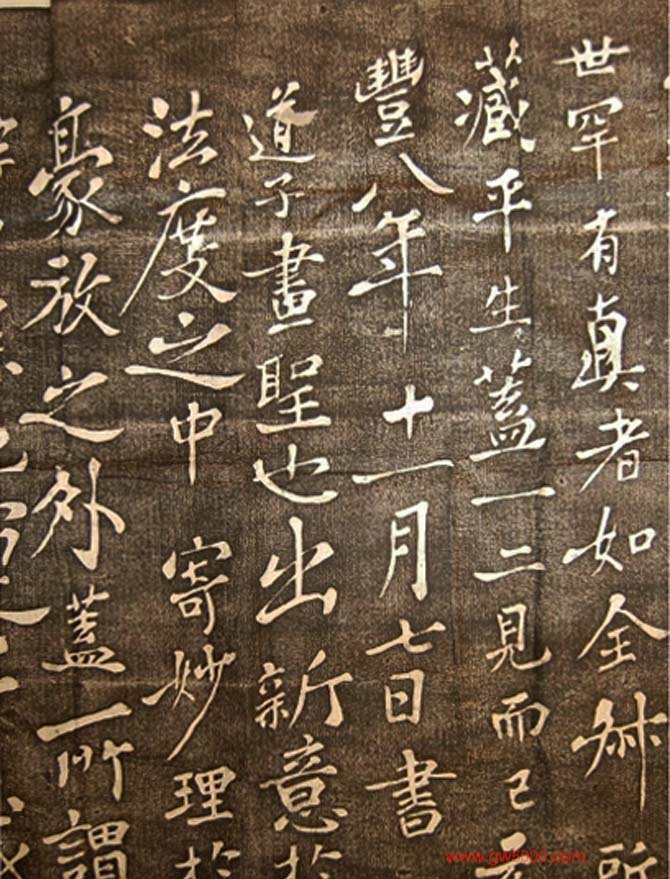 世罕有真者如全叔所
藏平生蓋一二見而已元
豐八年十一月七日書
道子畫聖也出新意於
法度之中寄妙理於
豪放之外蓋一所謂